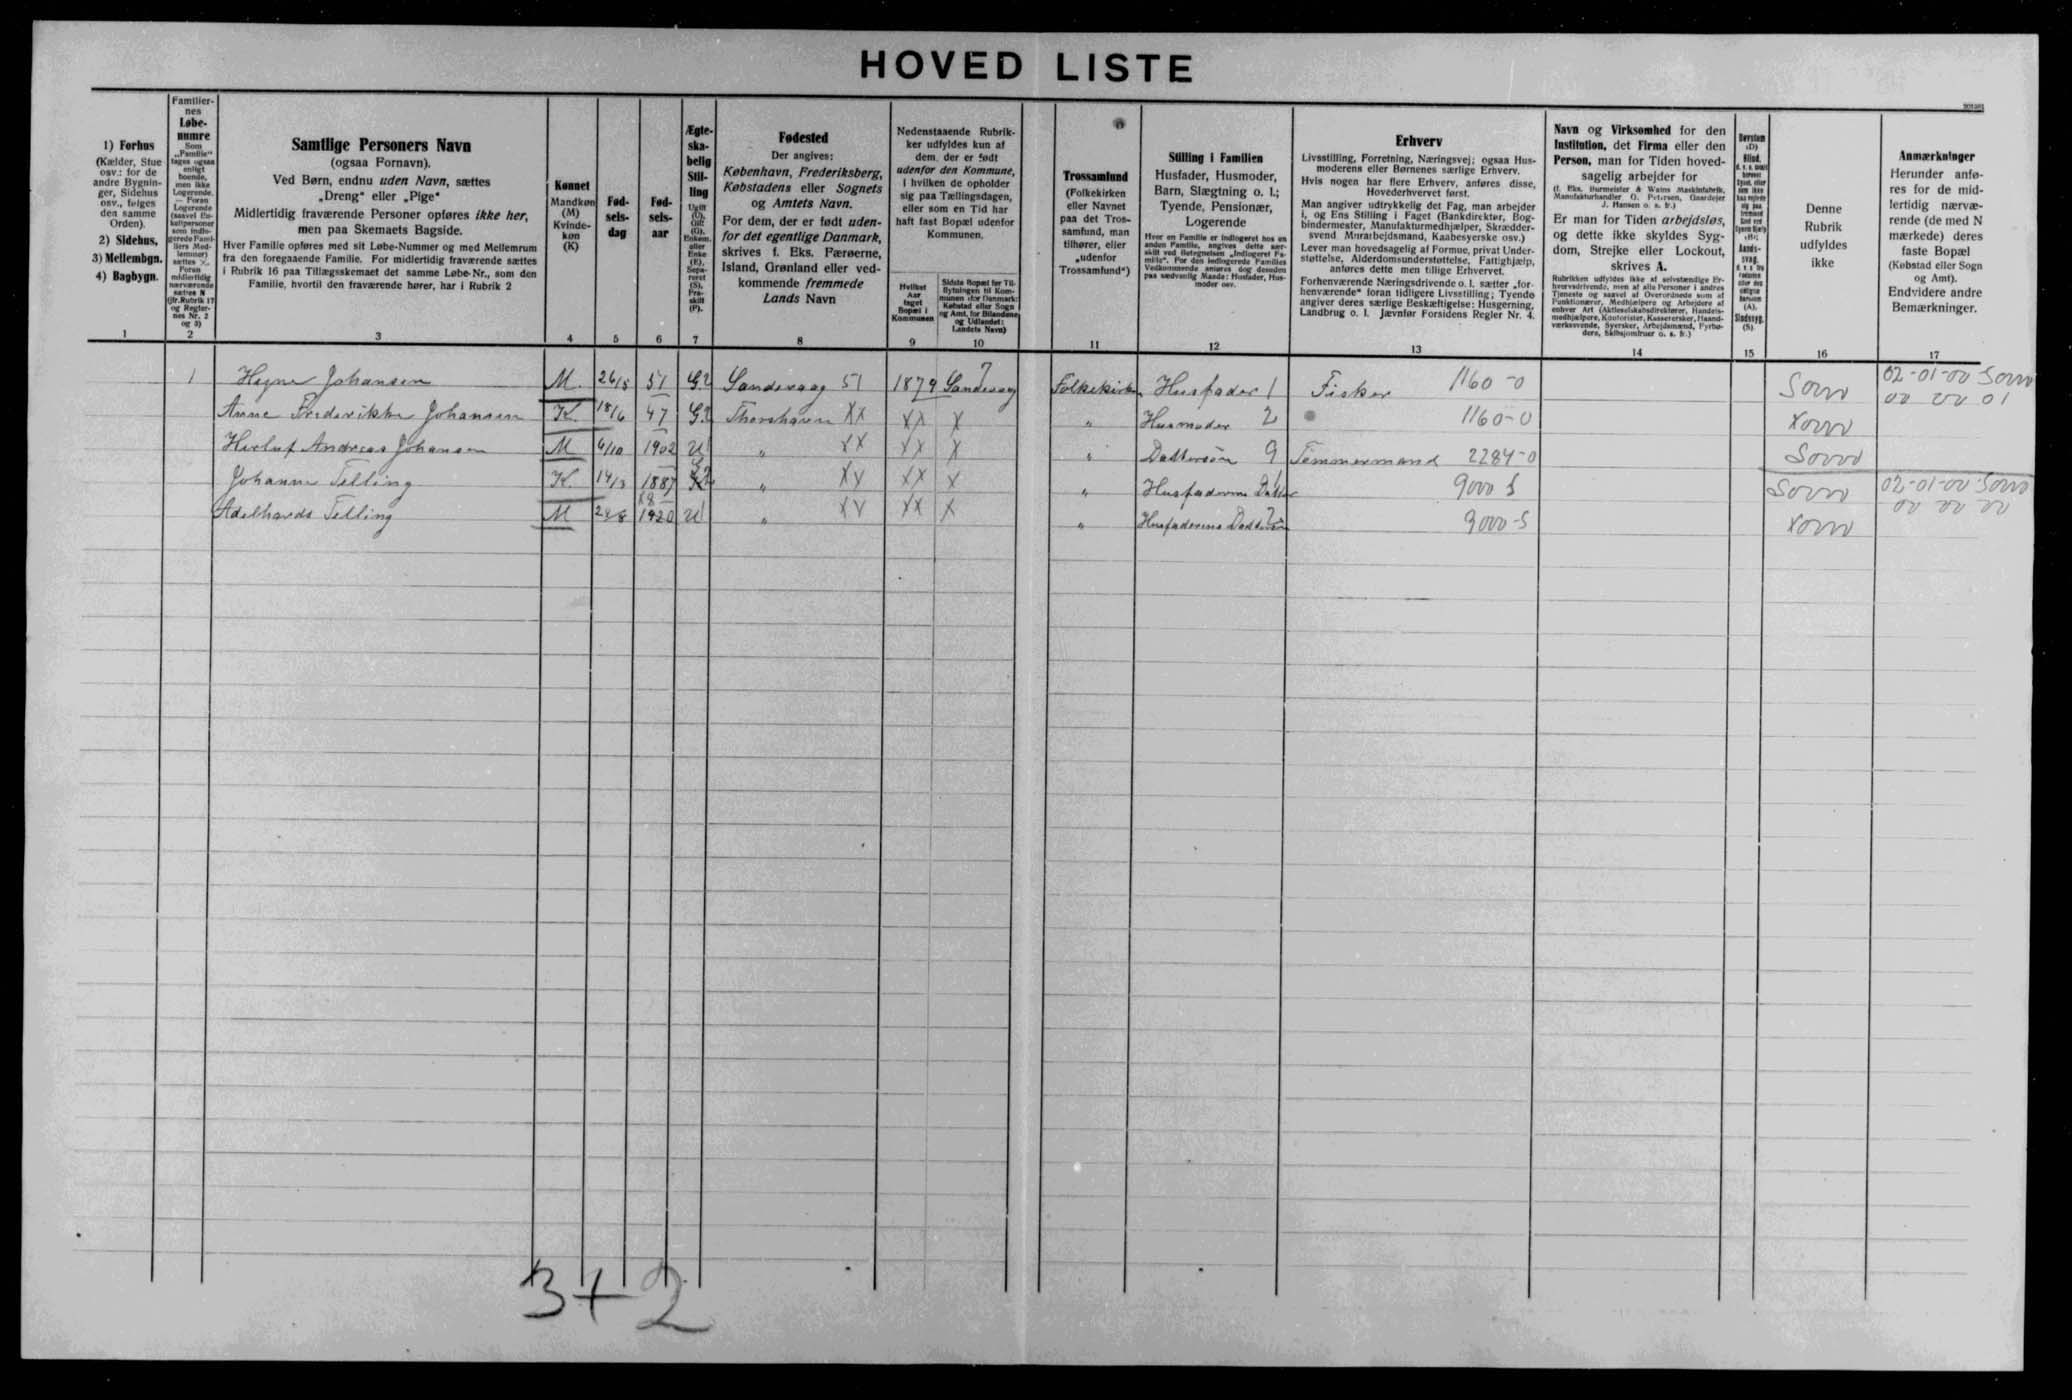 HOVED LISTE
201561
1) Forhus
(Kælder, Stue
osv.: for de
andre Bygnin-
ger, Sidehus
osv., følges
den samme
Orden).
2) Sidehus,
3) Mellembgn.
4) Bagbygn.
1
Familier-
nes
Løbe-
numre
Som
„Familie"
tages ogsaa
enligt
boende,
men ikke
Logerende.
— Foran
Logerende
(saavel En-
keltpersoner
som indlo-
gerede Fami-
liers Med-
lemmer)
sættes ×.
Foran
midlertidig
nærværende
sættes N
(jfr. Rubrik 17
og Regler-
nes Nr. 2
og 3)
2
Samtlige Personers Navn
(ogsaa Fornavn).
Ved Børn, endnu uden Navn, sættes
„Dreng" eller „Pige"
Midlertidig fraværende Personer opføres ikke her,
men paa Skemaets Bagside.
Hver Familie opføres med sit Løbe-Nummer og med Mellemrum
fra den foregaaende Familie. For midlertidig fraværende sættes
i Rubrik 16 paa Tillægsskemaet det samme Løbe-Nr., som den
Familie, hvortil den fraværende hører, har i Rubrik 2
3
Kønnet
Mandkøn
(M)
Kvinde-
køn
(K)
4
Fød-
sels-
dag
5
Fød-
sels-
aar
6
Ægte-
ska-
belig
Stil-
ling
Ugift
(U),
Gift
(G),
Enkem.
eller
Enke
(E),
Sepa-
reret
(S),
Fra-
skilt
(F).
7
Fødested
Der angives:
København, Frederiksberg,
Købstadens eller Sognets
og Amtets Navn.
For dem, der er født uden-
for det egentlige Danmark,
skrives f. Eks. Færøerne,
Island, Grønland eller ved-
kommende fremmede
Lands Navn
8
Nedenstaaende Rubrik-
ker udfyldes kun af
dem, der er født
udenfor den Kommune,
i hvilken de opholder
sig paa Tællingsdagen,
eller som en Tid har
haft fast Bopæl udenfor
Kommunen.
Hvilket
Aar
taget
Bopæl i
Kommunen
9
Sidste Bopæl før Til-
flytningen til Kom-
munen (for Danmark:
Købstad eller Sogn
og Amt, for Bilandene
og Udlandet:
Landets Navn)
10
Trossamfund
(Folkekirken
eller Navnet
paa det Tros-
samfund, man
tilhører, eller
„udenfor
Trossamfund")
11
Stilling i Familien
Husfader, Husmoder,
Barn, Slægtning o. l.;
Tyende, Pensionær,
Logerende
Hvor en Familie er indlogeret hos en
anden Familie, angives dette sær-
skilt ved Betegnelsen „Indlogeret Fa-
milie". For den indlogerede Families
Vedkommende anføres dog desuden
paa sædvanlig Maade: Husfader, Hus-
moder osv.
12
Erhverv
Livsstilling, Forretning, Næringsvej; ogsaa Hus-
moderens eller Børnenes særlige Erhverv.
Hvis nogen har flere Erhverv, anføres disse,
Hovederhvervet først.
Man angiver udtrykkelig det Fag, man arbejder
i, og Ens Stilling i Faget (Bankdirektør, Bog-
bindermester, Manufakturmedhjælper, Skrædder-
svend, Murarbejdsmand, Kaabesyerske osv.)
Lever man hovedsagelig af Formue, privat Under-
støttelse, Alderdomsunderstøttelse, Fattighjælp,
anføres dette men tillige Erhvervet.
Forhenværende Næringsdrivende o. l. sætter „for-
henværende" foran tidligere Livsstilling; Tyende
angiver deres særlige Beskæftigelse: Husgerning,
Landbrug o. l. Jævnfør Forsidens Regler Nr. 4.
13
Navn og Virksomhed for den
Institution, det Firma eller den
Person, man for Tiden hoved-
sagelig arbejder for
(f. Eks. Burmeister & Wains Maskinfabrik,
Manufakturhandler G. Petersen, Gaardejer
J. Hansen o. s. fr.)
Er man for Tiden arbejdsløs,
og dette ikke skyldes Syg-
dom, Strejke eller Lockout,
skrives A.
Rubrikken udfyldes ikke af selvstændige Er-
hvervsdrivende, men af alle Personer i andres
Tjeneste og saavel af Overordnede som af
Funktionærer, Medhjælpere og Arbejdere af
enhver Art (Aktieselskabsdirektører, Handels-
medhjælpere, Kontorister, Kasserersker, Haand-
værkssvende, Syersker, Arbejdsmænd, Fyrbø-
dere, Skibsjomfruer o. s. fr.)
14
Døvstum
(D)
Blind,
(B);
Aands-
svag,
(A),
Sindssyg.
(S).
15
Denne
Rubrik
udfyldes
ikke
16
Anmærkninger
Herunder anfø-
res for de mid-
lertidig nærvæ-
rende (de med N
mærkede) deres
faste Bopæl
(Købstad eller Sogn
og Amt).
Endvidere andre
Bemærkninger.
17
1 Hejne Johansen M. 26/5 51 G.2 Sandevaag 51 1879 Sandevaag 7 Folkekirken Husfader 1 Fisker 1160-0 Sovv 02-01-00 Sovv
00 00 01
Anne Frederikke Johansen K. 18/6 47 G.2 Thorshavn XX XX X " Husmoder 2 1160-0 Xovv
Herluf Andreas Johansen M 6/10 1902 U1 " XX XX X " Dattersøn 9 Tømmermand 2284-0 Sovvv
Johanne Telling K. 14/3 1887 G2 " XX XX X " Husfaderens Datter 1 9000 S Sovvv 02-01-00 Sovv
00 00 00
Adelhards Telling M 24/8 1920 U1 " XX XX X " Husfaderens Dattersøn 9000-S Xovv
3+2